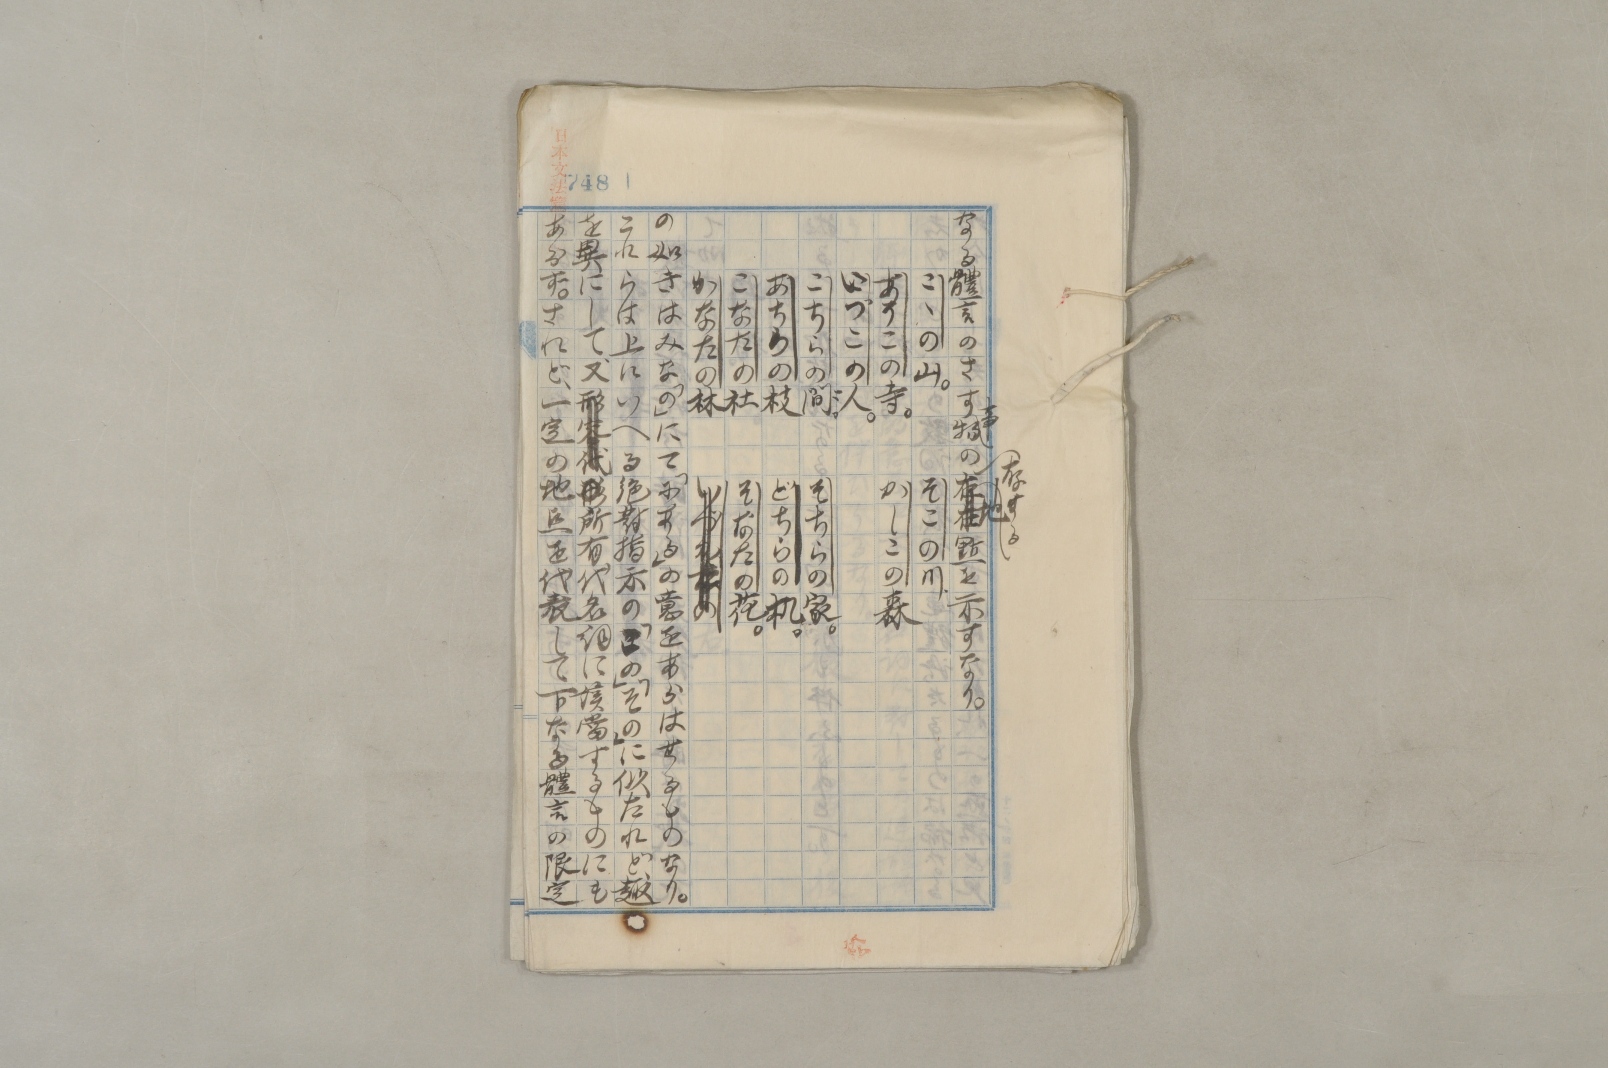 日本文法論
748
なる體言のさす事物の存する地點を示すなり。
こゝの山。　そこの川
あすこの寺。　かしこの森
いづこの人。
こちらの間。　そちらの家。
あちらの枝　どちらの机。
こなたの社　そなたの花。
かなたの林
の如きはみな「の」にて「にある」の意をあらはせるものなり。
これらは上にいへる絶對指示の「この」「その」に似たれど、趣
を異にして、又所有代名詞に該當するものにも
あらず。されど、一定の地點を代表して下なる體言の限定